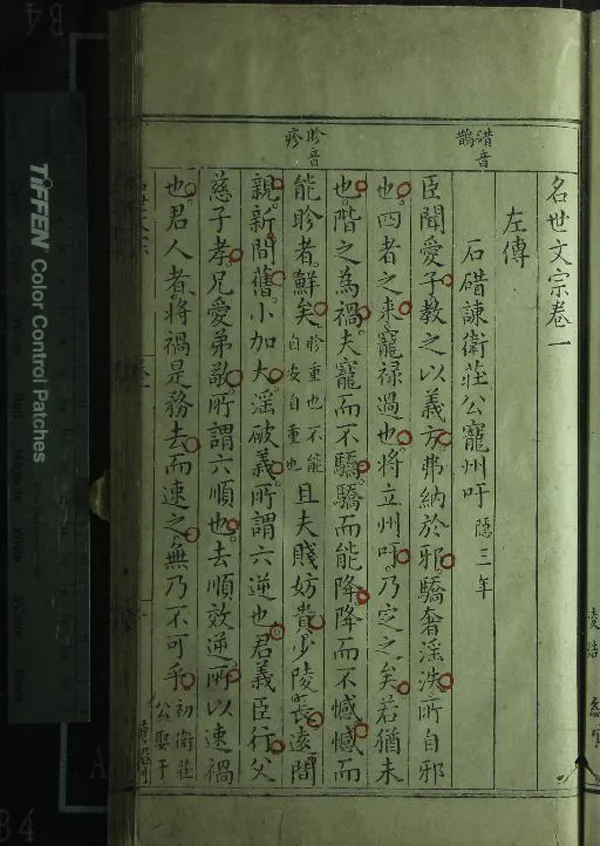 名世文宗卷一
左傳
石碏諫衛莊公寵州吁 隱三年
臣聞愛子教之以義方弗納於邪驕奢淫泆所自邪
也四者之来寵禄過也將立州吁乃定之矣若猶未
也階之為禍夫寵而不驕驕而能降降而不憾憾而
能眕者鮮矣 眕重也不能自安自重也 且夫賤妨貴少陵長遠間
親新間舊小加大淫破義所謂六逆也君義臣行父
慈子孝兄愛弟敬所謂六順也去順效逆所以速禍
也君人者將禍是務去而速之無乃不可乎 初衛莊公娶于
碏音鵲
眕音疹
TIFFEN Color Control Patches
B4
A